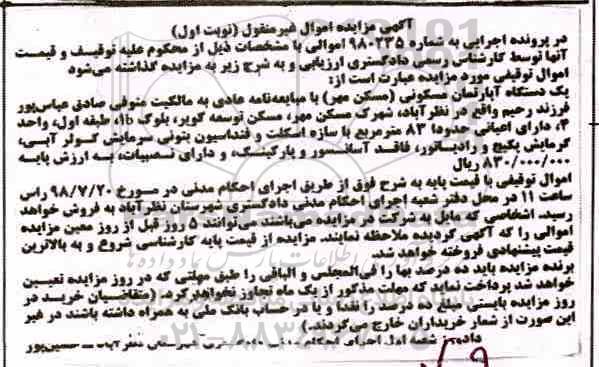 آگهی مزایده اموال غیرمنقول (نوبت اول)
در پرونده اجرایی به شماره ۹۸۰۲۳۵ اموالی با مشخصات ذیل از محکوم علیه توقیف و قیمت
آنها توسط کارشناس رسمی دادگستری ارزیابی و به شرح زیر به مزایده گذاشته می‌شود
اموال توقیفی مورد مزایده عبارت است از:
یک دستگاه آپارتمان مسکونی (مسکن مهر) با مبایعه‌نامه عادی به مالکیت متوفی صادق عباس‌پور
فرزند رحیم واقع در نظرآباد، شهرک مسکن مهر، مسکن توسعه کویر، بلوک ib، طبقه اول، واحد
۳، دارای اعیانی حدودا ۸۳ مترمربع با سازه اسکلت و فنداسیون بتونی سرمایش کولر آبی،
گرمایش پکیج و رادیاتور، فاقد آسانسور و پارکینگ، و دارای نصبیات، به ارزش پایه
۸۳۰/۰۰۰/۰۰۰ ریال
اموال توقیفی با قیمت پایه به شرح فوق از طریق اجرای احکام مدنی در مورخ ۹۸/۷/۲۰ راس
ساعت ۱۱ در محل دفتر شعبه اجرای احکام مدنی دادگستری شهرستان نظرآباد به فروش خواهد
رسید. اشخاصی که مایل به شرکت در مزایده می‌باشند می‌توانند ۵ روز قبل از روز معین مزایده
اموالی را که آگهی گردیده ملاحظه نمایند. مزایده از قیمت پایه کارشناسی شروع و به بالاترین
قیمت پیشنهادی فروخته خواهد شد.
برنده مزایده باید ده درصد بها را فی‌المجلس و الباقی را طبق مهلتی که در روز مزایده تعیین
خواهد شد پرداخت نماید که مهلت مذکور از یک ماه تجاوز نخواهد کرد. (متقاضیان خرید در
روز مزایده بایستی مبلغ ده درصد را نقدا و یا در حساب بانک ملی به همراه داشته باشند در غیر
این صورت از شمار خریداران خارج می‌گردند.)
دادورز شعبه اول اجرای احکام مدنی دادگستری شهرستان نظرآباد ــ حسین‌پور